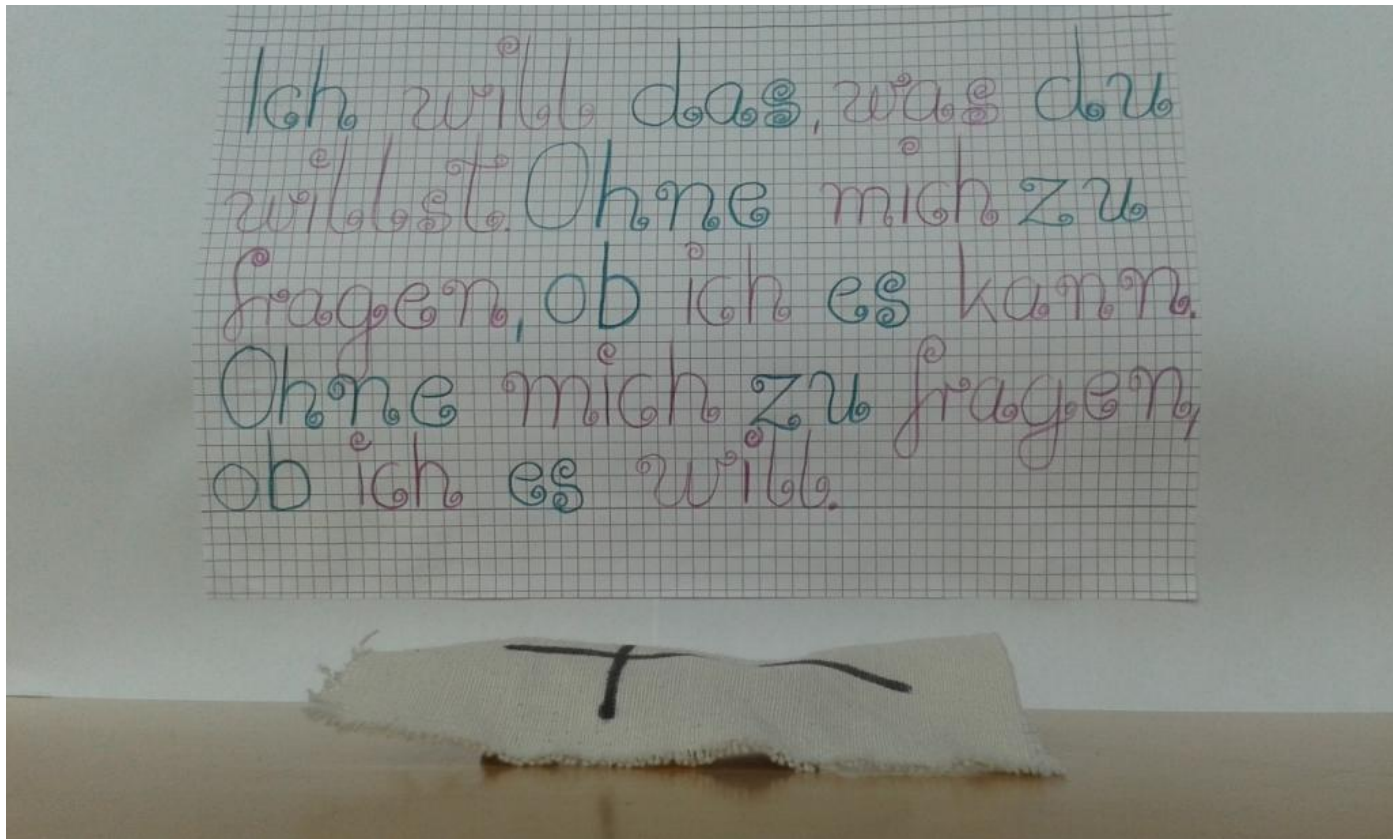 Ich will das, was du
willst. Ohne mich zu
fragen, ob ich es kann.
Ohne mich zu fragen,
ob ich es will.